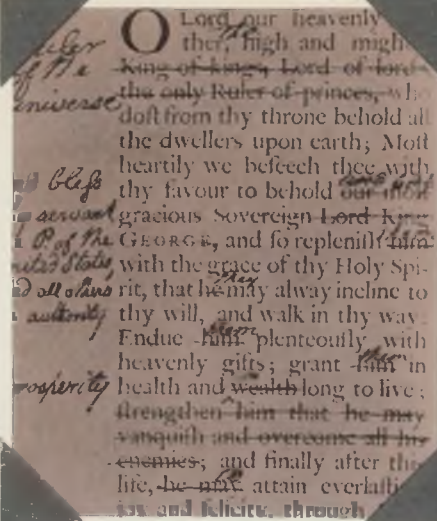 O Lord our heavenly
ther, the high and migh
King of kings, Lord of lords
the only Ruler of princes, who
dost from thy throne behold all
the dwellers upon earth; Most
heartily we beseech thee with
thy favour to behold our most
gracious Sovereign Lord King
GEORGE, and so replenish him
with the grace of thy Holy Spi-
rit, that he they may alway incline to
thy will, and walk in thy way:
Endue him them plenteously with
heavenly gifts; grant him them in
health and wealth long to live;
strengthen him that he may
vanquish and overcome all his
enemies; and finally after this
life, he may attain everlasti
joy and felicity, through
of the
universe
bless
servant
P. of the
nited States,
d all others
authority
rosperity